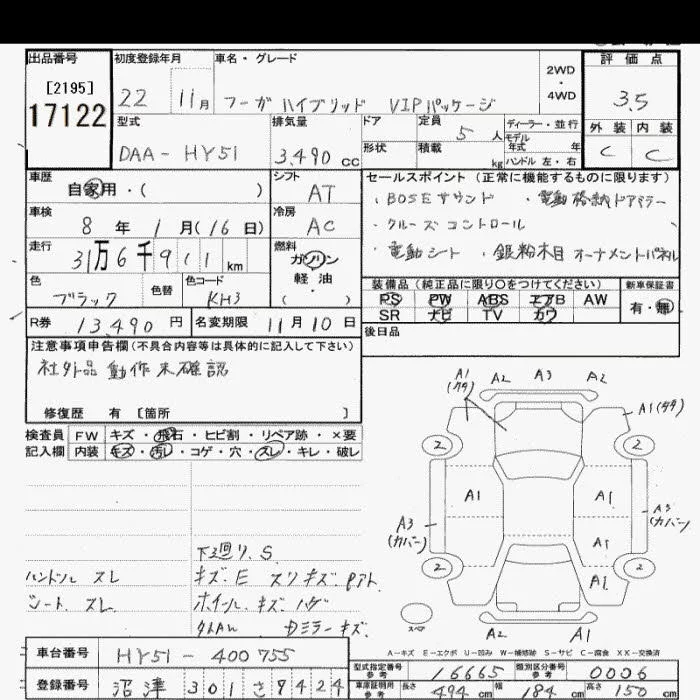 出品番号
[2195]
17122
初度登録年月
22 11月
車名・グレード
フーガ ハイブリッド VIPパッケージ
2WD
・
4WD
評価点
3.5
外装 内装
C C
型式
DAA-HY51
排気量
3,490 cc
ドア
形状
定員
5人
積載
kg
ディーラー・並行
モデル
年式 年
ハンドル 左・右
車歴
自家用・( )
シフト
AT
セールスポイント (正常に機能するものに限ります)
・BOSEサウンド ・電動格納ドアミラー
・クルーズコントロール
・電動シート ・銀粉木目オーナメントパネル
車検
8年 1月(16日)
冷房
AC
走行
31万6千911km
燃料
ガソリン
軽・油
( )
色
ブラック
色替
色コード
KH3
装備品 (純正品に限り○をつけてください)
PS PW ABS エアB AW
SR ナビ TV カワ
新車保証書
有・無
R券 13,490円
名変期限 11月10日
後日品
注意事項申告欄 (不具合内容等は具体的に記入して下さい)
社外品 動作未確認
修復歴 有 [箇所 ]
検査員 FW キズ・飛石・ヒビ割・リペア跡・×要
記入欄 内装 キズ・汚レ・コゲ・穴・スレ・キレ・破レ
A1 A2 A3 A2
A1
2 2
A1 A1
A3 (カバー)
A1
2 2
A1
スペア
A2 A1
下廻り.S
ハンドル スレ
キズ.E スリキズ.Pアト
シート.スレ
ホイール.キズ.ハゲ
ミラーキズ
A-キズ E-エクボ U-凹み W-補修跡 S-サビ C-腐食 XX-交換済
車台番号 HY51-400755
登録番号 沼津 301 さ 9424
型式指定番号
参考
16665
類別区分番号
参考
0006
車庫証明用
参考
長さ 494cm 幅 184cm 高さ 150cm